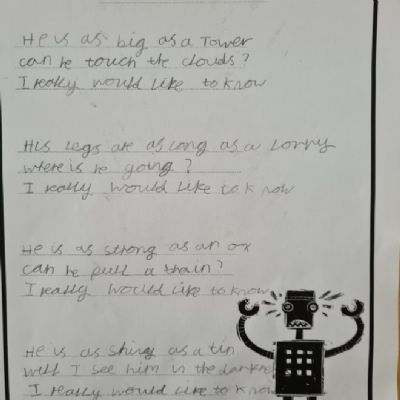 He is as big as a Tower
can he touch the clouds?
I really would like to know
His legs are as long as a Lorry
where is he going?
I really would like to know
He is as strong as an ox
can he pull a train?
I really would like to know
He is as shiny as a tin
will I see him in the
I really would like to know